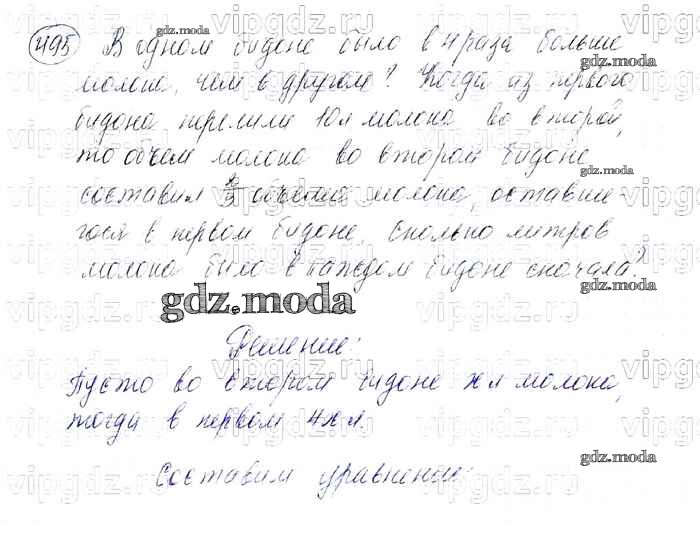 495 В одном бидоне было в 4 раза больше
молока, чем в другом? Когда из первого
бидона перелили 10 л молока во второй,
то объем молока во втором бидоне
составил 2/3 объема молока, оставше-
гося в первом бидоне. Сколько литров
молока было в каждом бидоне сначала?
gdz.moda
Решение:
Пусто во втором бидоне x л молока,
тогда в первом 4x л.
Составим уравнение: